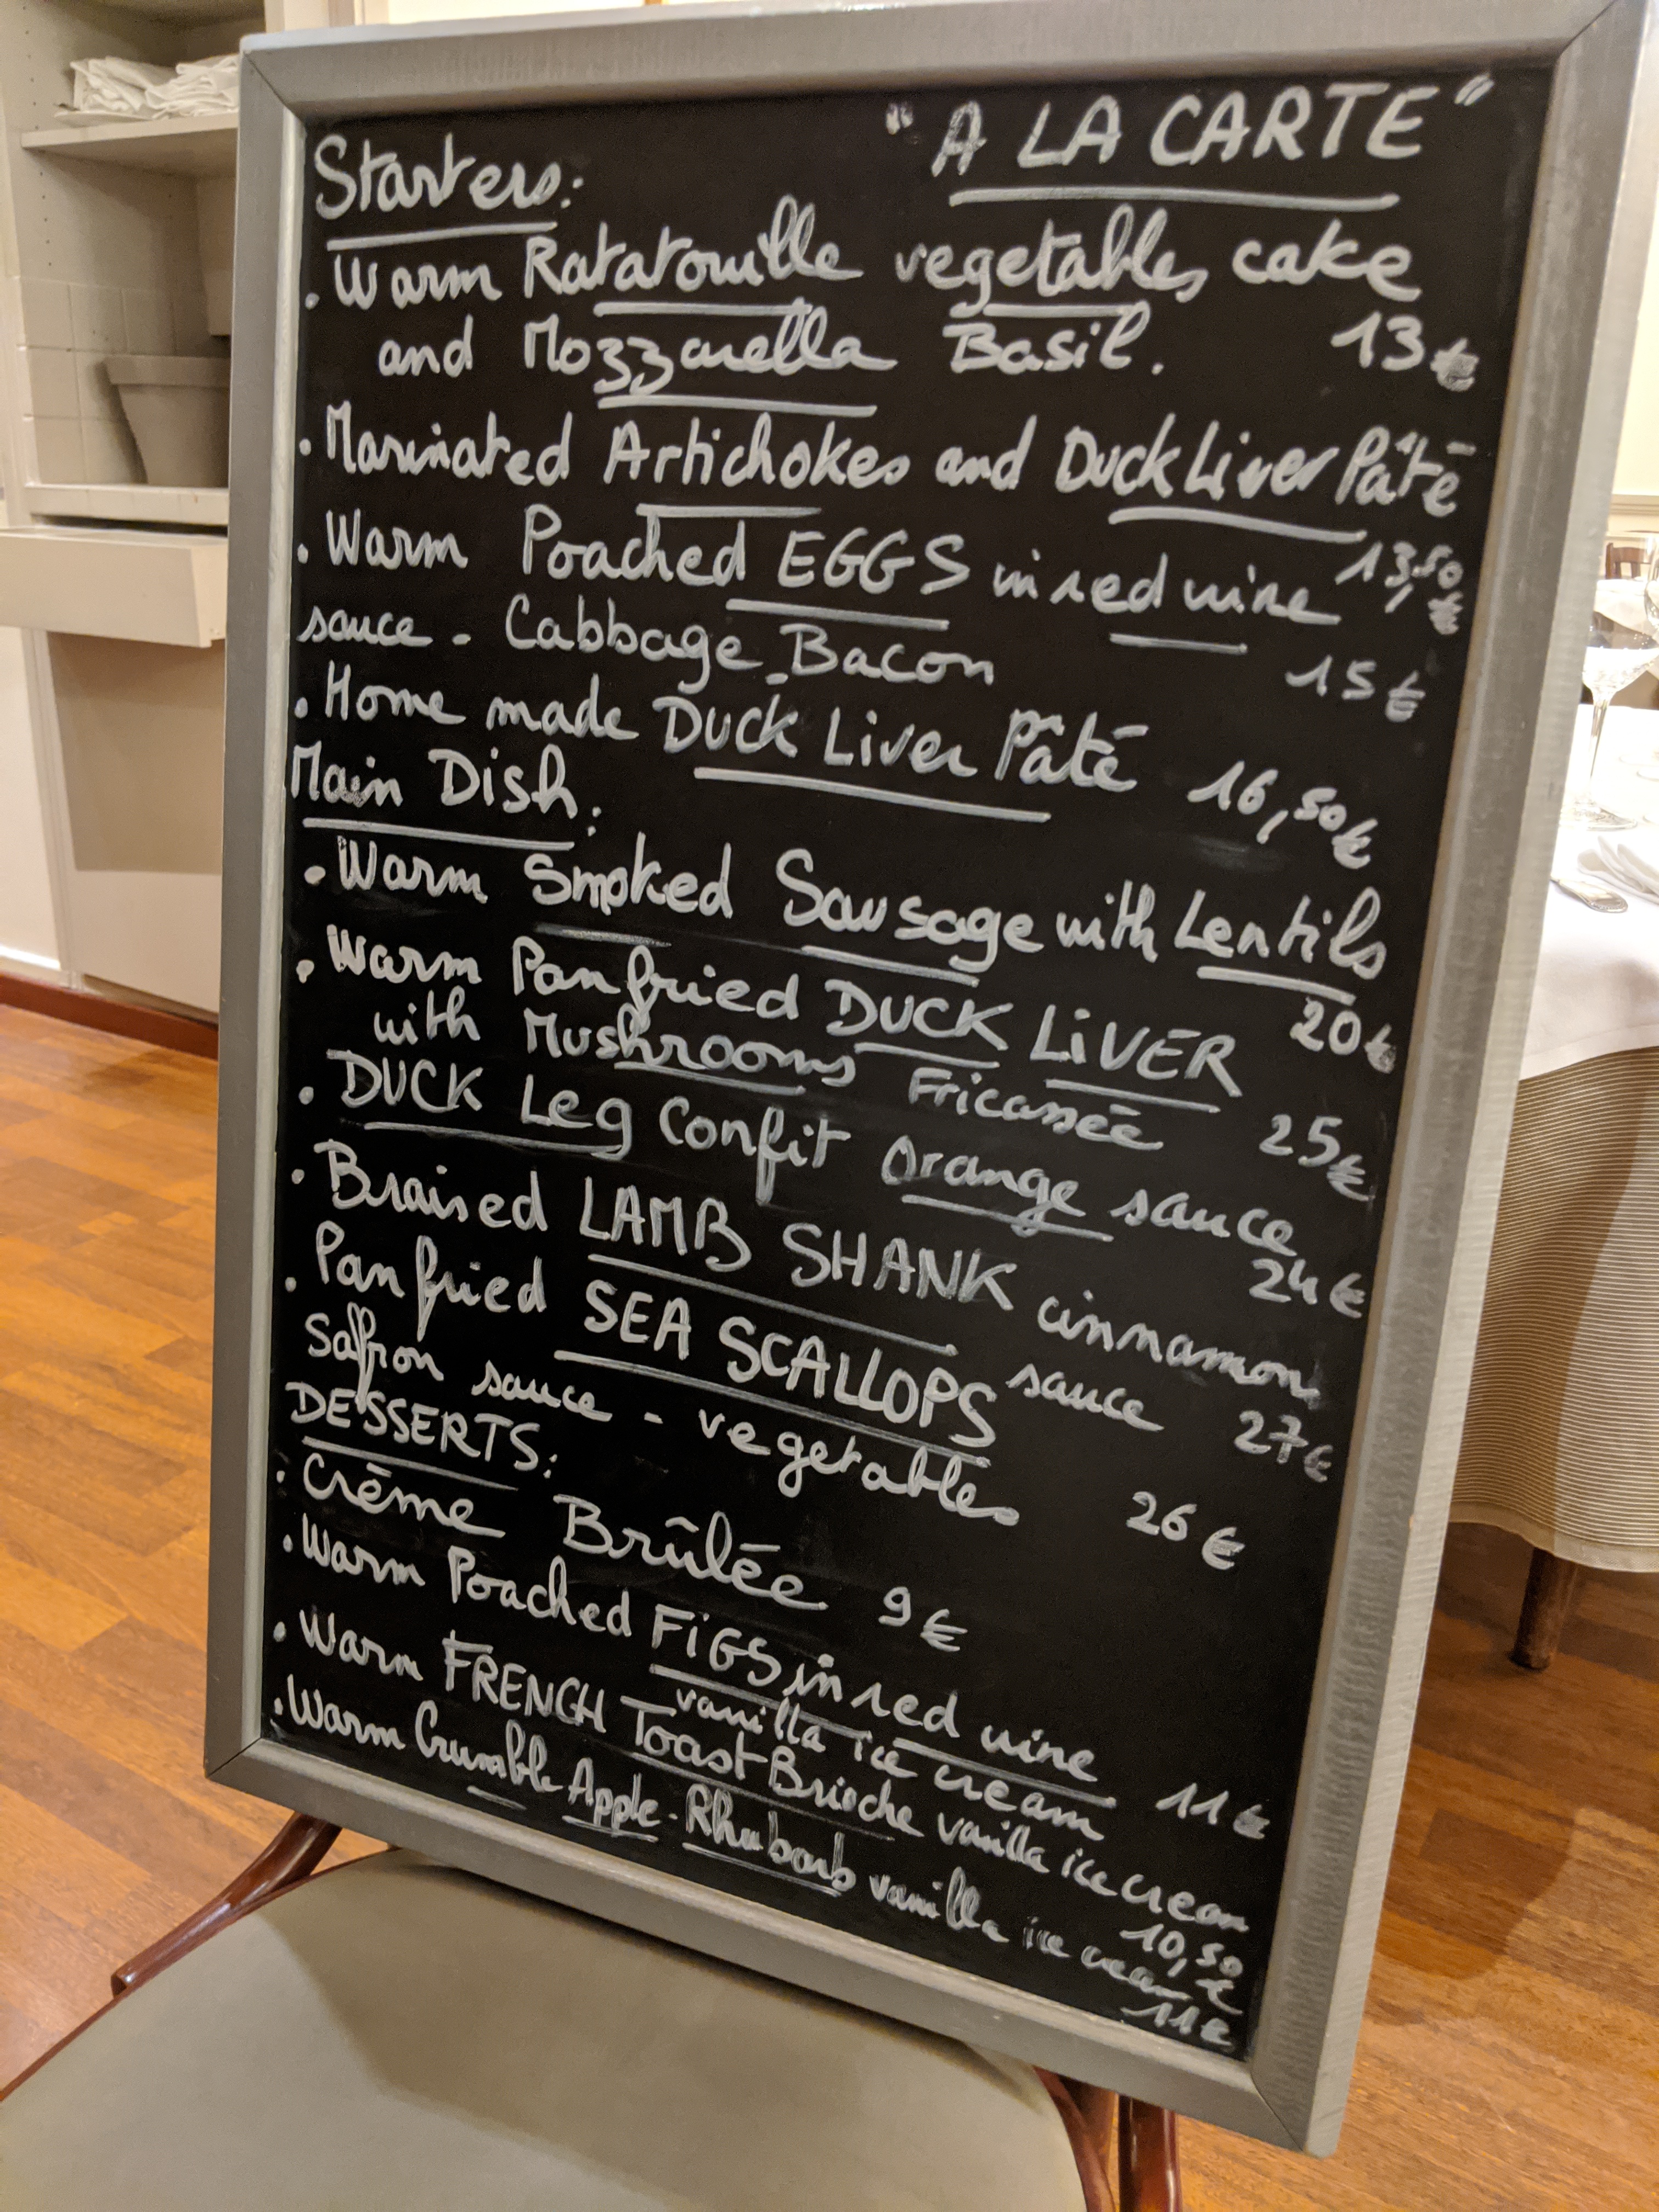 "A LA CARTE"
Starters:
. Warm Ratatouille vegetables cake
and Mozzarella Basil. 13€
. Marinated Artichokes and Duck Liver Pâté
13,50 €
. Warm Poached EGGS in red wine
sauce - Cabbage Bacon 15€
. Home made Duck Liver Pâté 16,50€
Main Dish:
. Warm Smoked Sausage with Lentils
20€
. Warm Panfried DUCK LiVER
with Mushrooms Fricassée 25€
. DUCK Leg Confit Orange sauce
24€
. Braised LAMB SHANK cinnamon
sauce 27€
. Panfried SEA SCALLOPS
Saffron sauce - vegetables 26€
DESSERTS:
. Crème Brûlée 9€
. Warm Poached FiGS in red wine
vanilla ice cream 11€
. Warm FRENCH Toast Brioche vanilla ice cream
10,50 €
. Warm Crumble Apple - Rhubarb vanilla ice cream
11€